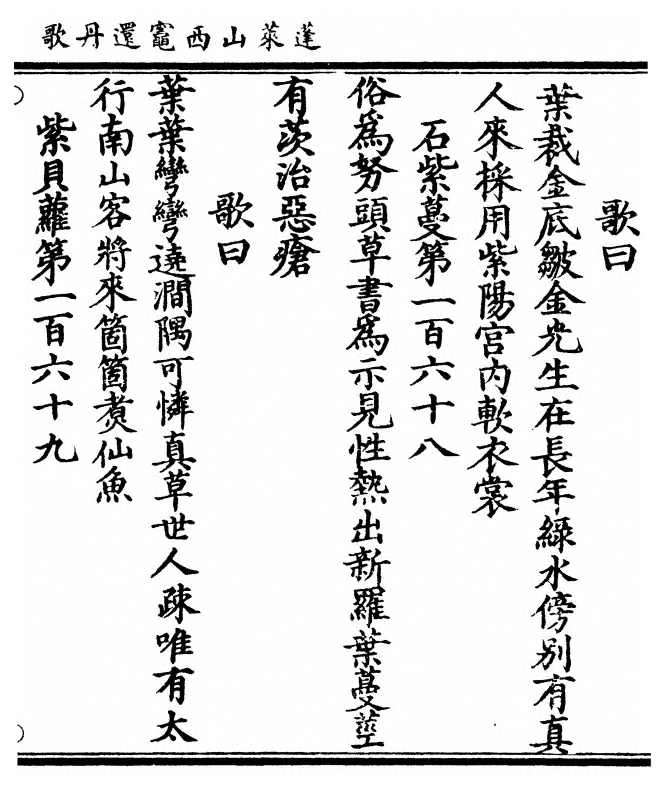 蓬萊山西竈還丹歌
歌曰
葉裁金底皺金光生在長年綠水傍别有真
人來採用紫陽宮内軟衣裳
石紫蔓第一百六十八
俗爲努頭草書爲示見性熱出新羅葉蔓莖
有茨治惡瘡
歌曰
葉葉彎彎遶澗隅可憐真草世人疎唯有太
行南山客將來箇箇煑仙魚
紫貝蘿第一百六十九